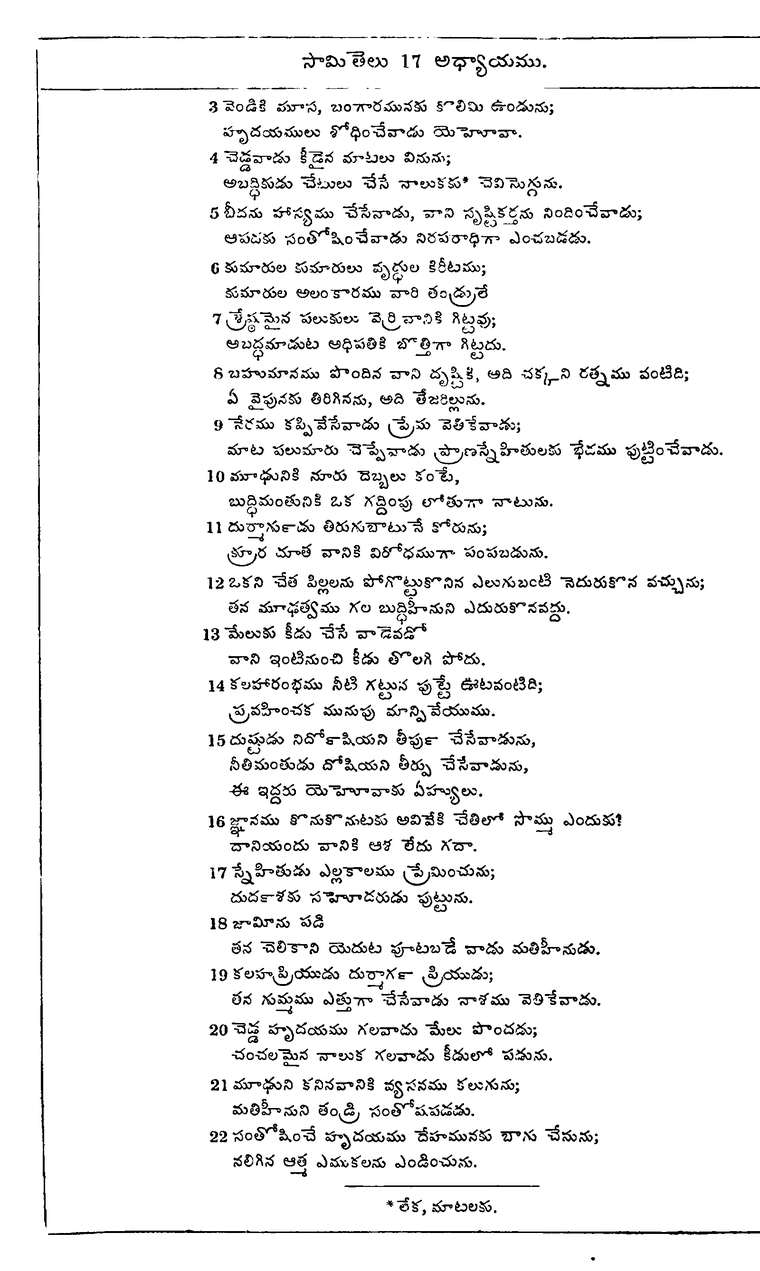 సామితెలు 17 అధ్యాయము.
3 వెండికి మూస, బంగారమునకు కొలిమి ఉండును;
హృదయములు శోధించేవాడు యెహెూవా.
4 చెడ్డవాడు కీడైన మాటలు వినును;
అబద్ధికుడు చేటులు చేసే నాలుకకు* చెవిసొగ్గును.
5 బీదను హాస్యము చేసేవాడు, వాని సృష్టికర్తను నిందించేవాడు;
ఆపదకు సంతోషించేవాడు నిరపరాధిగా ఎంచబడడు.
6 కుమారుల కుమారులు వృర్ధుల కిరీటము;
కుమారుల అలంకారము వారి తండ్రులే
7 శ్రేష్ఠమైన పలుకులు వెర్రివానికి గిట్టవు;
అబద్ధమాడుట అధిపతికి బొత్తిగా గిట్టదు.
8 బహుమానము పొందిన వాని దృష్టికి, అది చక్కని రత్నము వంటిది;
ఏ వైపునకు తిరిగినను, అది తేజరిల్లును.
9 నేరము కప్పివేసేవాడు ప్రేమ వెతికేవాడు;
మాట పలుమారు చెప్పేవాడు ప్రాణస్నేహితులకు భేదము పుట్టించేవాడు.
10 మూఢునికి నూరు దెబ్బలు కంటే,
బుద్ధిమంతునికి ఒక గద్దింపు లోతుగా నాటును.
11 దుర్మాగు౯డు తిరుగుబాటునే కోరును;
క్రూర దూత వానికి విరోధముగా పంపబడును.
12 ఒకని చేత పిల్లలను పోగొట్టుకొనిన ఎలుగుబంటి నెదురుకొన వచ్చును;
తన మూఢత్వము గల బుద్ధిహీనుని ఎదురుకొనవద్దు.
13 మేలుకు కీడు చేసే వాడెవడో
వాని ఇంటినుంచి కీడు తొలగి పోదు.
14 కలహారంభము నీటి గట్టున పుట్టే ఊటవంటిది;
ప్రవహించక మునుపు మాన్పివేయుము.
15 దుష్టుడు నిదో౯షియని తీపు౯ చేసేవాడును,
నీతిమంతుడు దోషియని తీర్పు చేసేవాడును,
ఈ ఇద్దరు యెహెూవాకు ఏహ్యులు.
16 జ్ఞానము కొనుకొనుటకు అవివేకి చేతిలో సొమ్ము ఎందుకు?
దానియందు వానికి ఆశ లేదు గదా.
17 స్నేహితుడు ఎల్లకాలము ప్రేమించును;
దుద౯శకు సహెూదరుడు పుట్టును.
18 జామీను పడి
తన చెలికాని యెదుట పూటబడే వాడు మతిహీనుడు.
19 కలహప్రియుడు దుర్మాగ౯ ప్రియుడు;
తన గుమ్మము ఎత్తుగా చేసేవాడు నాశము వెతికేవాడు.
20 చెడ్డ హృదయము గలవాడు మేలు పొందడు;
చంచలమైన నాలుక గలవాడు కీడులో పడును.
21 మూఢుని కనినవానికి వ్యసనము కలుగును;
మతిహీనుని తండ్రి సంతోషపడడు.
22 సంతోషించే హృదయము దేహమునకు బాగు చేసును;
నలిగిన ఆత్మ ఎముకలను ఎండించును.
* లేక, మాటలకు.